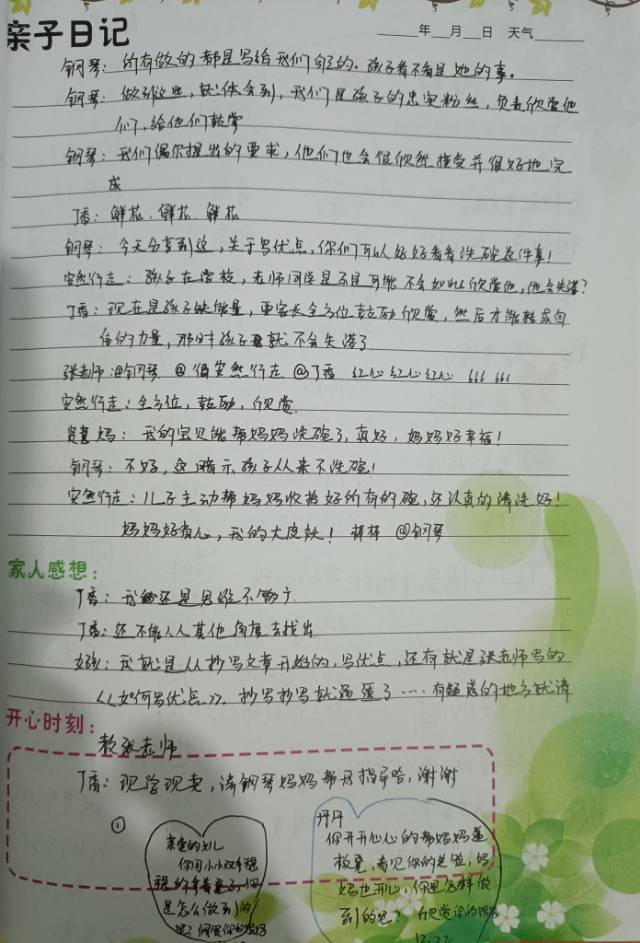 亲子日记
年 月 日 天气
钢琴：所有做的都是写给我们自己的。孩子看不看是她的事。
钢琴：做到这些，就体会到，我们是孩子的忠实粉丝，负责欣赏他
们，给他们鼓掌
钢琴：我们偶尔提出的要求，他们也会很欣然接受并很好地完
成
丁香：鲜花、鲜花、鲜花
钢琴：今天分享到这，关于写优点，你们可以好好看看洗碗这件事！
安然行走：孩子在学校，老师同学是不是可能不会如此欣赏他，他会失落？
丁香：现在是孩子缺能量，要家长全方位鼓励欣赏，然后才能转成自
信的力量，那时孩子就不会失落了
张老师：@钢琴 @安然行走 @丁香 红心红心红心 666 666
安然行走：全方位，鼓励，欣赏
妈：我的宝贝能帮妈妈洗碗了，真好，妈妈好幸福！
钢琴：不好，这暗示孩子从来不洗碗！
安然行走：儿子主动帮妈妈收拾好所有的碗，还认真的清洗好！
妈妈好有心，我的大皮袄！棒棒 @钢琴
家人感想：
丁香：我还是思维不够广
丁香：还不能从其他角度去找出
女孩：我就是从抄写文章开始的，写优点，还有就是张老师写的
《《如何写优点》》。抄写抄写就通透了……有疑惑的地方就请
开心时刻：
教张老师
丁香：现学现卖，请钢琴妈妈帮我指导哈，谢谢
①
亲爱的女儿
你用小小双手
是怎么做到的
呢？
丹丹
你开开心心的帮妈妈
板凳，看见你的笑脸，妈
妈也开心，你是怎样做
到的呢？
12.22